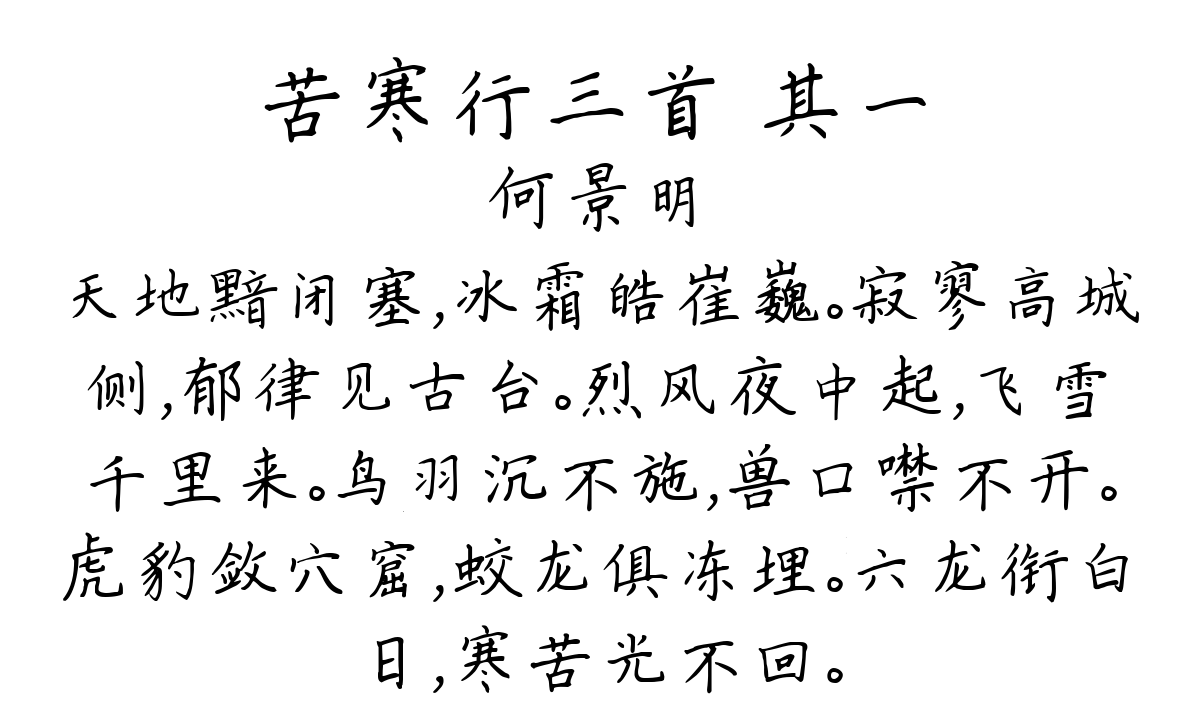 苦寒行三首 其一
何景明
天地黯闭塞,冰霜皓崔巍。寂寥高城
侧,郁律见古台。烈风夜中起,飞雪
千里来。鸟羽沉不施,兽口噤不开。
虎豹敛穴窟,蛟龙俱冻埋。六龙衔白
日,寒苦光不回。